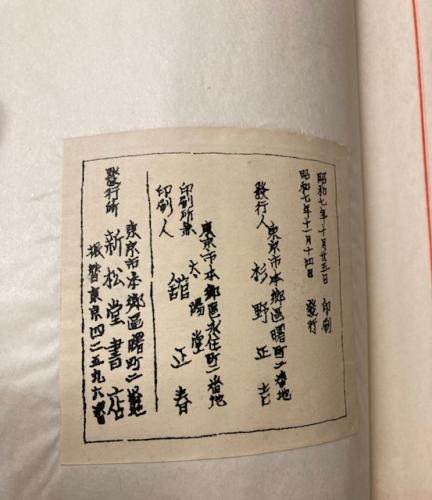 昭和七年十月廿五日 印刷
昭和七年十一月十四日 發行
東京市本鄕區曙町二番地
發行人 杉野正吉
東京市本鄕區永住町二番地
印刷所兼 太陽堂
印刷人 舘正春
東京市本鄕區曙町二番地
發行所 新松堂書店
振替東京四二五九六番